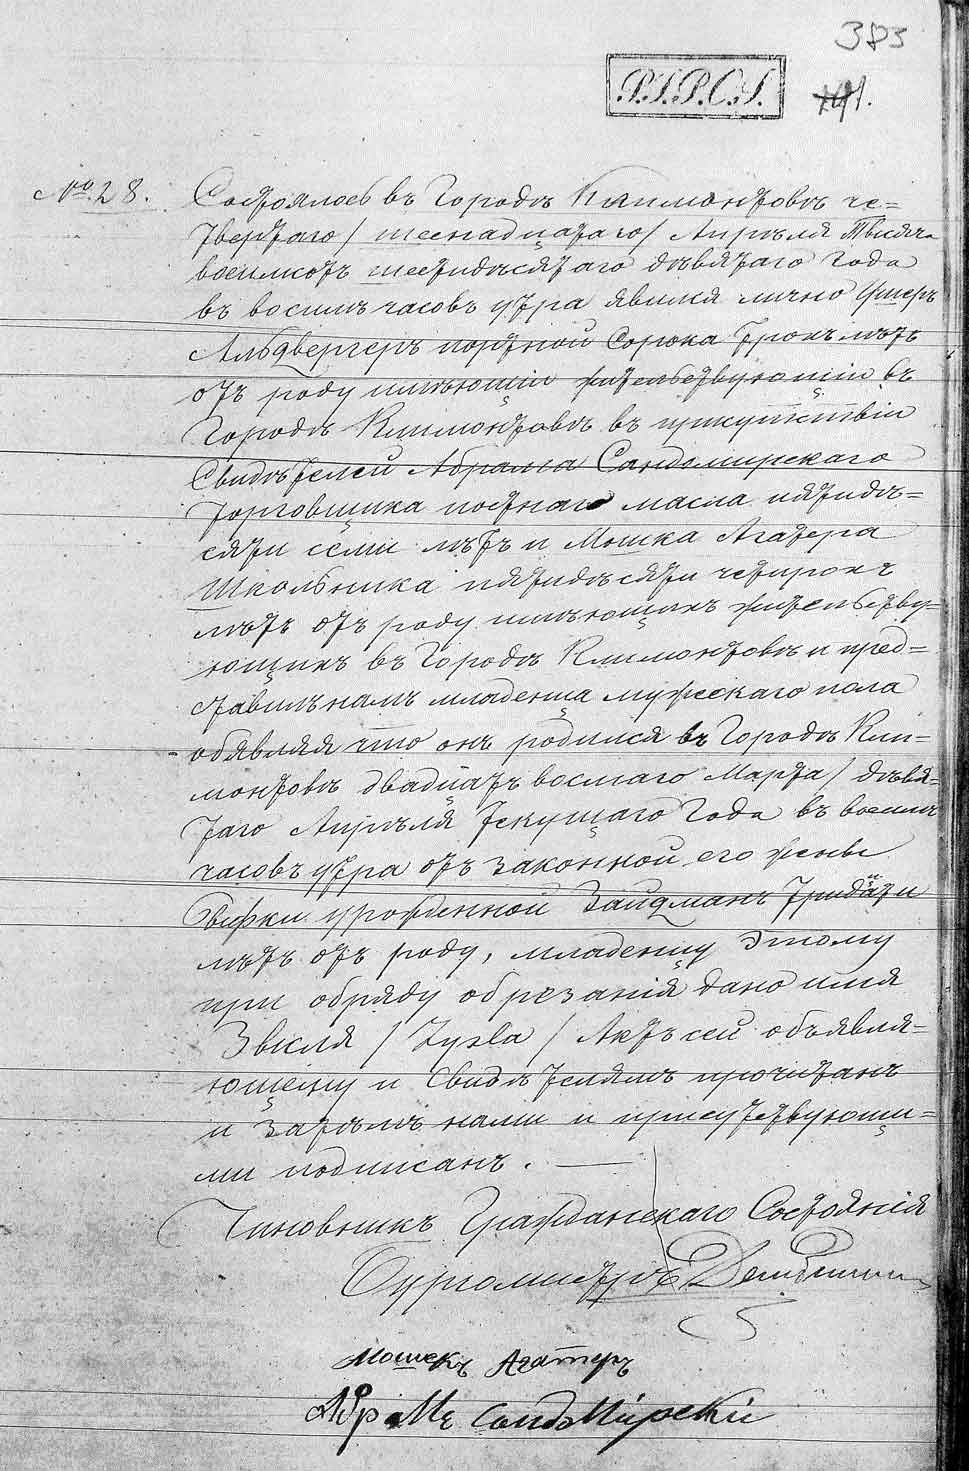 383
P.I.P.O.I.
141.
№ 28. Состоялось въ Городѣ Климонтовѣ че=
твертаго / шеснадцатаго / Апрѣля Тысяча
восимсотъ шестидѣсятаго дѣвятаго Года
въ восимъ часовъ утра явился лично Ушеръ
Альдвергеръ портной Сорока Трохъ лѣтъ
отъ роду имѣющій жительствующій въ
Городѣ Климонтовѣ въ присутствіи
Свидѣтелей Абрама Сандомирскаго
торговщика постнаго масла пятидѣ=
сяти семи лѣтъ и Мошка Агатера
Школьника пятидѣсяти четирохъ
лѣтъ отъ роду имѣющихъ жительству=
ющихъ въ Городѣ Климонтовѣ и пред=
ставилъ намъ младенца мужескаго пола
объявляя что онъ родился въ Городѣ Кли=
монтовѣ двадцать восмаго Марта / дѣвя=
таго Апрѣля текущаго Года въ восимъ
часовъ утра отъ законной его жены
Рифки урожденной Зайдманъ Тридцати
лѣтъ отъ роду, младенцу этому
при обряду обрезанія дано имя
Зысля / Zysla / Актъ сей объявля=
ющему и Свидѣтелямъ прочитанъ
и затѣмъ нами и присутствующи=
ми подписанъ. —
Чиновникъ Гражданскаго Состоянія
Бургомистръ
Мошекъ Агатеръ
Абрамъ Сандомирскій